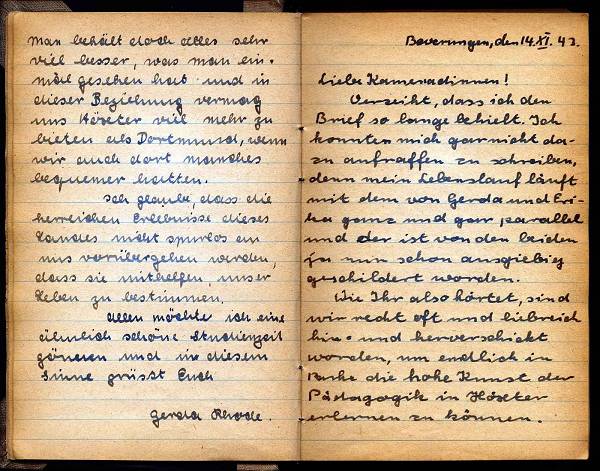 man behält doch alles sehr
viel besser, was man ein-
mal gesehen hat und in
dieser Beziehung vermag
uns Höxter viel mehr zu
bieten als Dortmund, wenn
wir auch dort manches
bequemer hatten.
Ich glaube, dass die
herrlichen Erlebnisse dieses
Landes nicht spurlos an
uns vorübergehen werden,
dass sie mithelfen, unser
Leben zu bestimmen.
Allen möchte ich eine
ähnlich schöne Studienzeit
gönnen und in diesem
Sinne grüsst Euch
Gerda Rhode.
Beverungen, den 14. XI. 43.
Liebe Kameradinnen!
Verzeiht, dass ich den
Brief so lange behielt. Ich
konnten mich gar nicht da-
zu aufraffen zu schreiben,
denn mein Lebenslauf läuft
mit dem von Gerda und Eri-
ka ganz und gar parallel
und der ist von den beiden
ja nun schon ausgiebig
geschildert worden.
Wie Ihr also hörtet, sind
wir recht oft und liebreich
hin- und herverschickt
worden, um endlich in
Ruhe die hohe Kunst der
Pädagogik in Höxter
erlernen zu können.